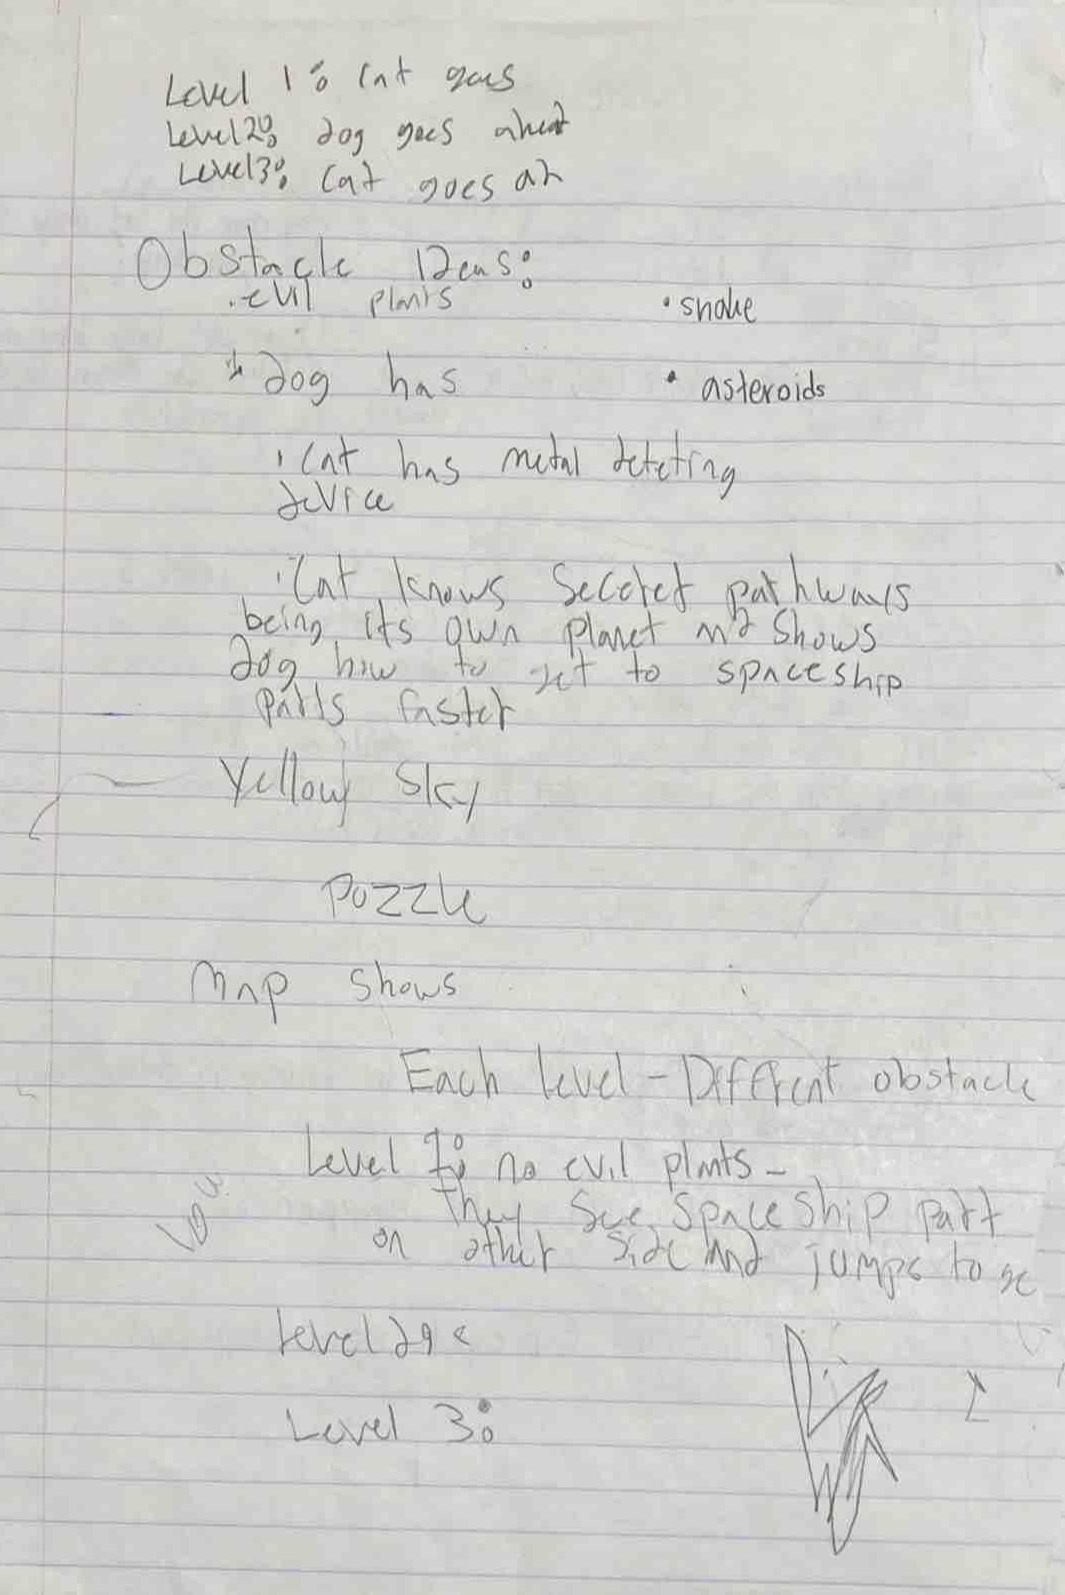 Level 1: Cat goes
Level 2: dog goes ahead
Level 3: Cat goes ah
Obstacle Ideas:
• evil plants
• snake
* dog has
• asteroids
• Cat has metal detcting
device
• Cat knows Secret pathways
being its own planet and shows
dog how to get to spaceship
parts faster
Yellow Sky
Puzzle
Map shows
Each level - Different obstacle
Level 1: no evil plants -
They see spaceship part
on other side and jumps to ge
Level 2:
Level 3: